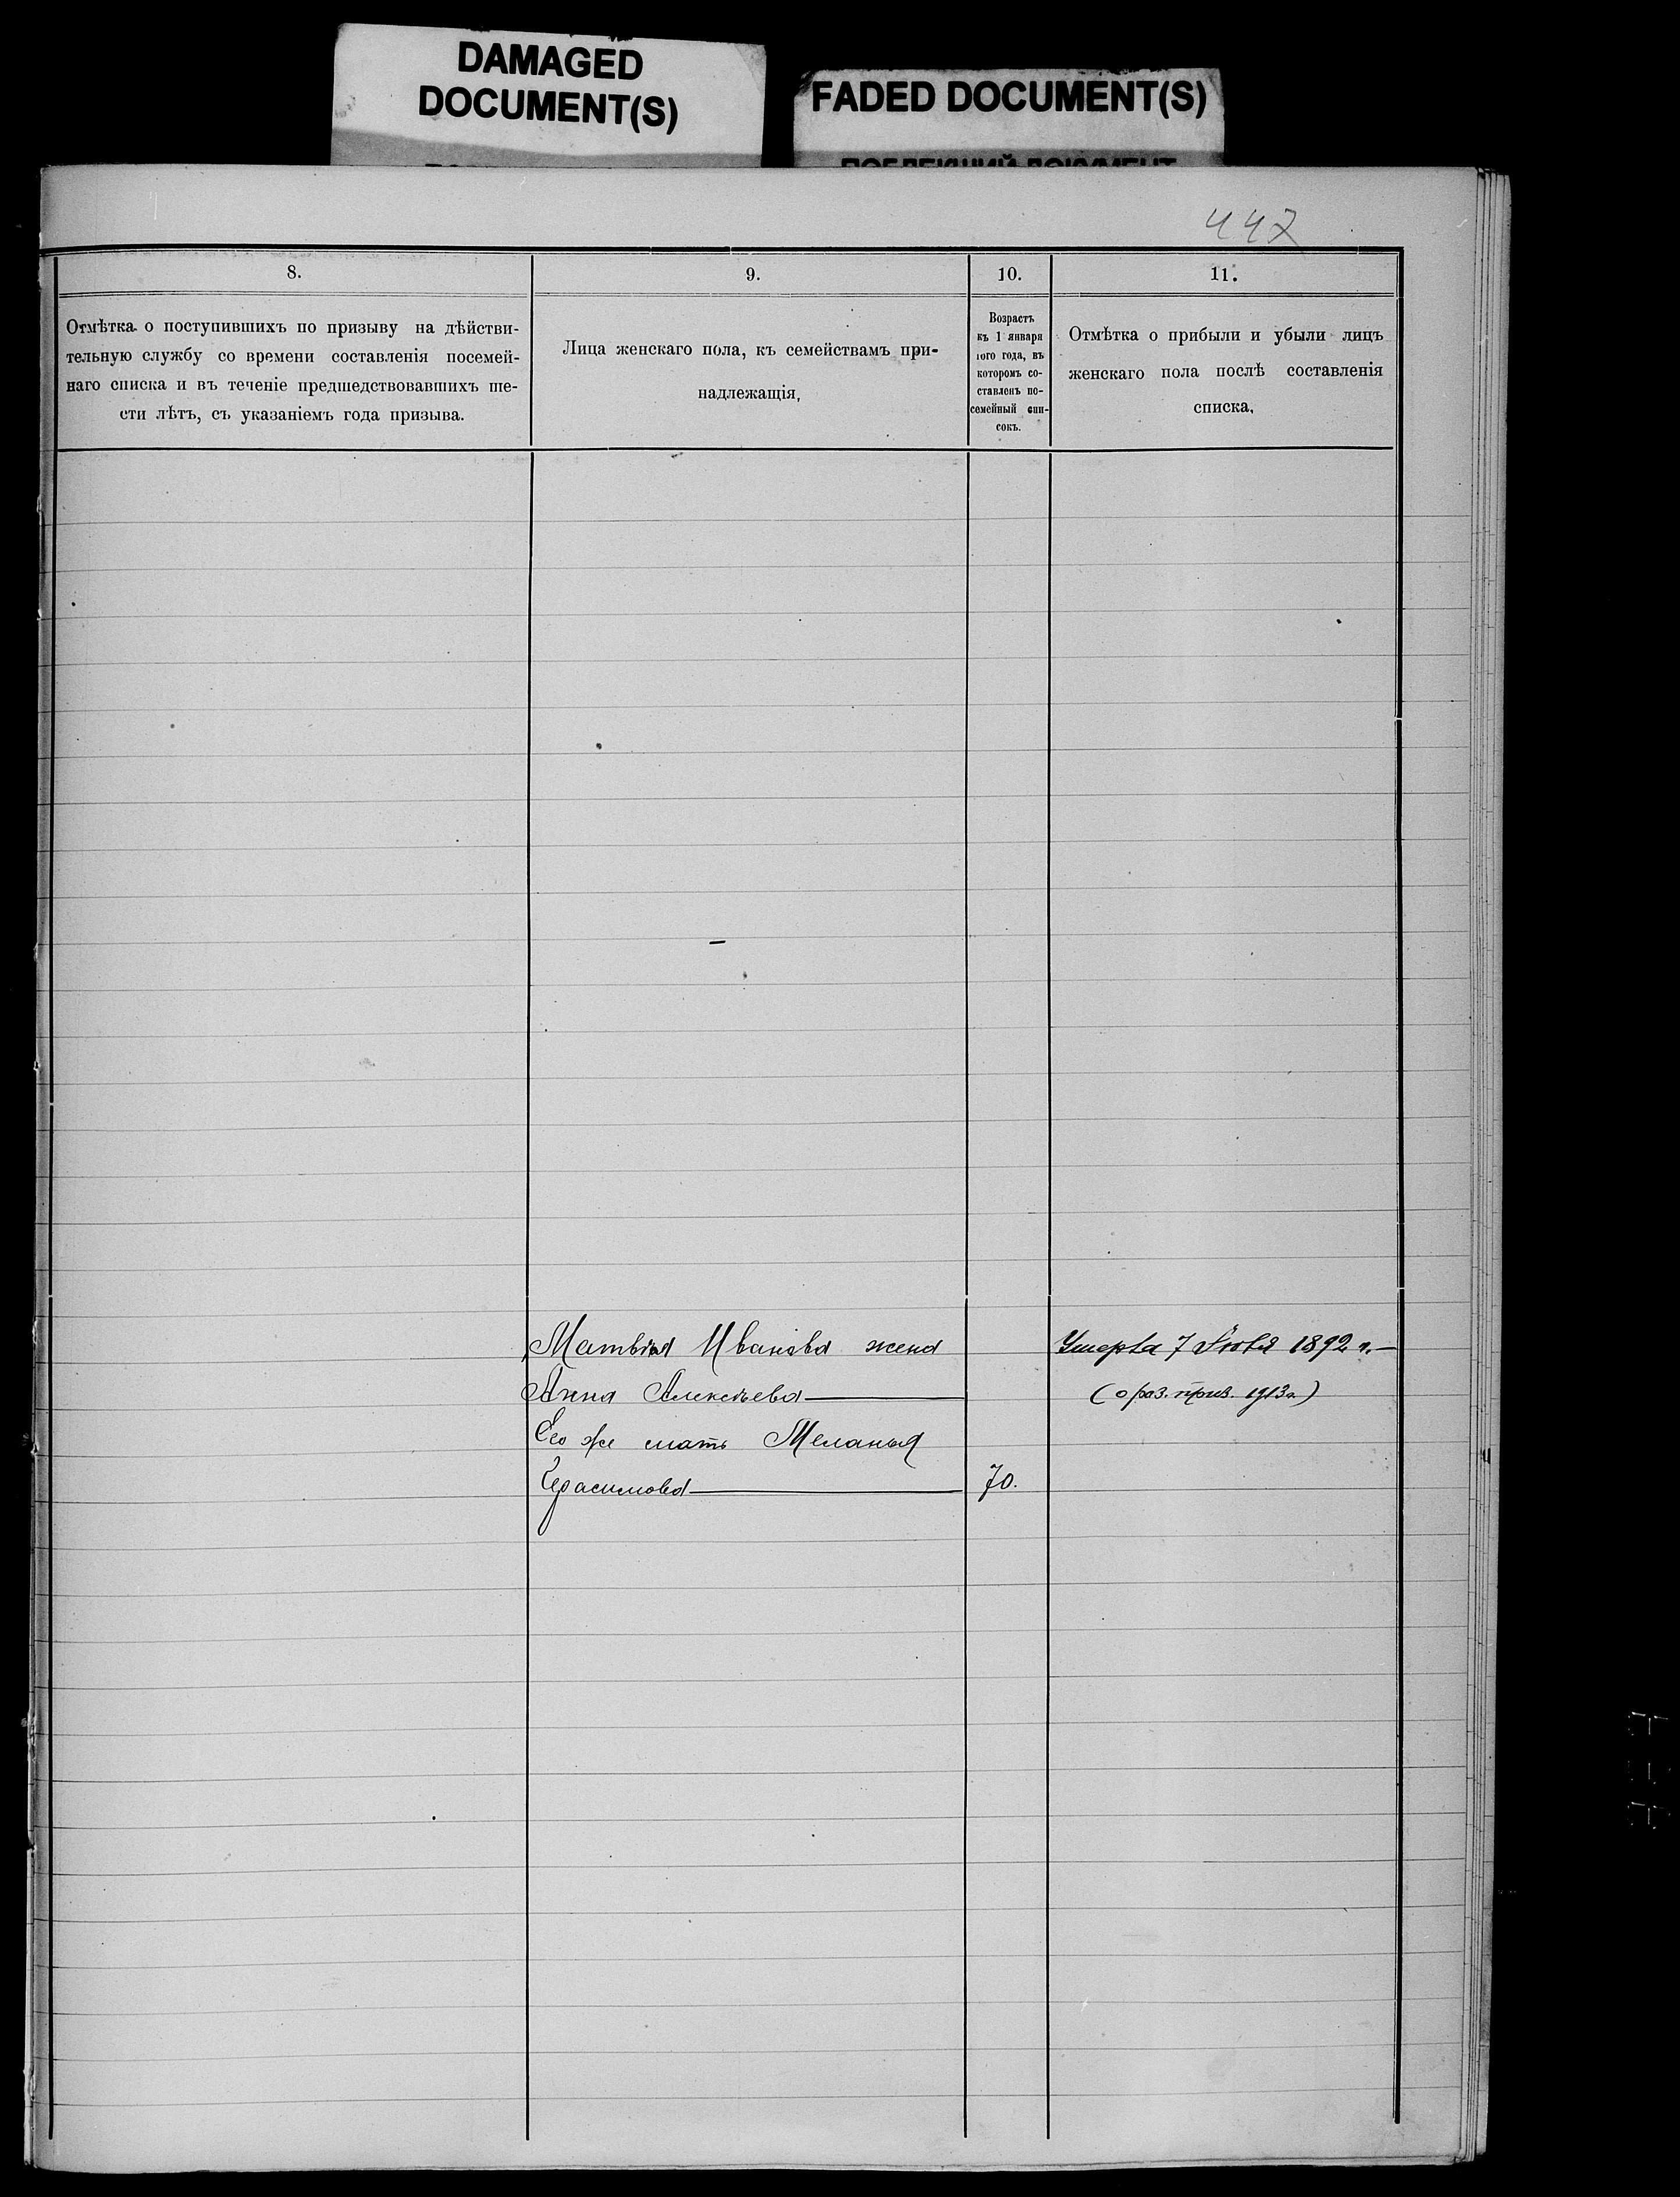 DAMAGED
DOCUMENT(S)
FADED DOCUMENT(S)
ПОБЛЕКШИЙ ДОКУМЕНТ
447
8.
Отмѣтка о поступившихъ по призыву на дѣйстви-
тельную службу со времени составленія посемей-
наго списка и въ теченіе предшедствовавшихъ ше-
сти лѣтъ, съ указаніемъ года призыва.
9.
Лица женскаго пола, къ семействамъ при-
надлежащія,
10.
Возрастъ
къ 1 января
того года, въ
которомъ со-
ставленъ по-
семейный спи-
сокъ.
11.
Отмѣтка о прибыли и убыли лицъ
женскаго пола послѣ составленія
списка,
Матвѣя Иванова жена
Анна Алексѣева
Его же мать Меланья
Герасимова
70.
Умерла 7 Іюля 1892 г.
1913 г.)